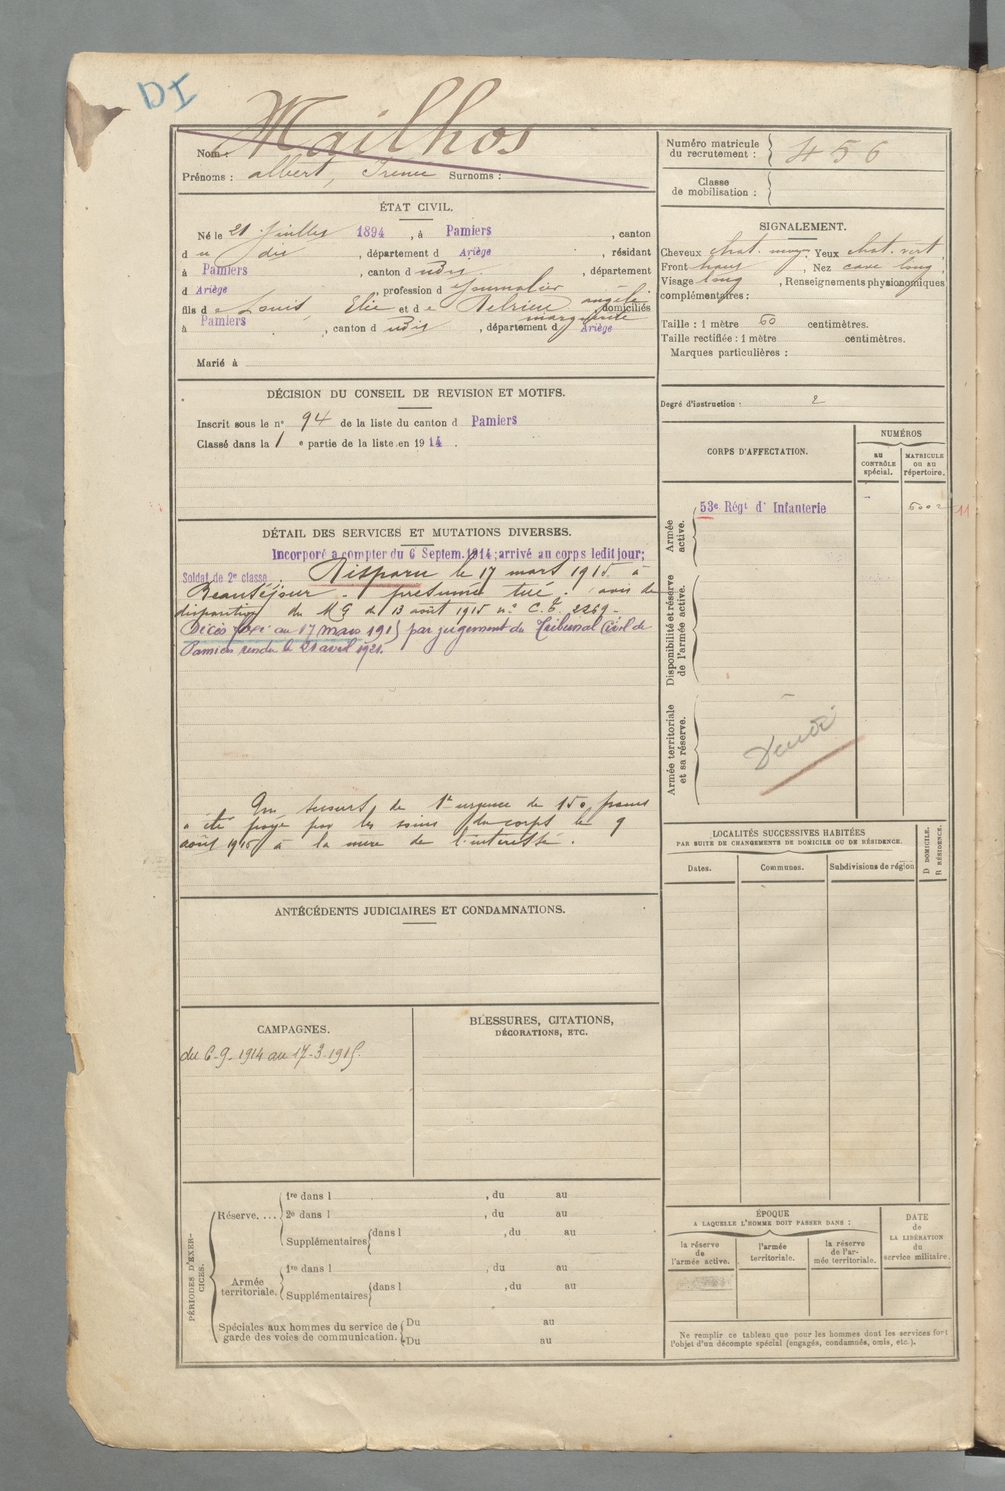 DI
Nom : Mailhos
Prénoms : albert, Irenée Surnoms :
Numéro matricule du recrutement : 456
Classe de mobilisation :
ÉTAT CIVIL.
Né le 21 Juillet 1894, à Pamiers, canton
d u dis, département d Ariège, résidant
à Pamiers, canton d udis, département
d Ariège, profession d Journalier
fils de Louis, Elie et de Delrieu angèle marguerite domiciliés
à Pamiers, canton d udis, département d Ariège
Marié à
SIGNALEMENT.
Cheveux chat. moy. Yeux chat. vert,
Front haut, Nez cave long,
Visage long, Renseignements physionomiques
complémentaires :
Taille : 1 mètre 60 centimètres.
Taille rectifiée : 1 mètre centimètres.
Marques particulières :
Degré d'instruction : 2
DÉCISION DU CONSEIL DE REVISION ET MOTIFS.
Inscrit sous le n° 94 de la liste du canton d Pamiers
Classé dans la 1e partie de la liste en 1914.
CORPS D'AFFECTATION.
NUMÉROS
AU CONTRÔLE spécial.
MATRICULE OU AU répertoire.
Armée active.
53e Régt d'Infanterie
5002
11
Disponibilité et réserve de l'armée active.
Armée territoriale et sa réserve.
DÉTAIL DES SERVICES ET MUTATIONS DIVERSES.
Incorporé a compter du 6 Septem. 1914; arrivé au corps ledit jour;
Soldat de 2e classe. Disparu le 17 mars 1915 à
Beauséjour. présumé tué. avis de
disparition du M G du 13 août 1915 n° C.E. 2269-
Décès fixé au 17 mars 1915 par jugement du Tribunal Civil de
Pamiers rendu le 21 avril 1921.
Un secours de 1e urgence de 150 francs
a été payé par les soins du corps le 9
août 1915 à la mère de l'intéressé.
LOCALITÉS SUCCESSIVES HABITÉES
PAR SUITE DE CHANGEMENTS DE DOMICILE OU DE RÉSIDENCE.
Dates.
Communes.
Subdivisions de région
D DOMICILE.
R RÉSIDENCE.
ANTÉCÉDENTS JUDICIAIRES ET CONDAMNATIONS.
CAMPAGNES.
du 6-9-1914 au 17-3-1915.
BLESSURES, CITATIONS,
DÉCORATIONS, ETC.
PÉRIODES D'EXERCICES.
Réserve, ...
1re dans l , du au
2e dans l , du au
Supplémentaires dans l , du au
Armée territoriale.
1re dans l , du au
Supplémentaires dans l , du au
Spéciales aux hommes du service de
garde des voies de communication.
Du au
Du au
ÉPOQUE
A LAQUELLE L'HOMME DOIT PASSER DANS :
la réserve de l'armée active.
l'armée territoriale.
la réserve de l'armée territoriale.
DATE de LA LIBÉRATION du service militaire.
Ne remplir ce tableau que pour les hommes dont les services font
l'objet d'un décompte spécial (engagés, condamnés, omis, etc.).